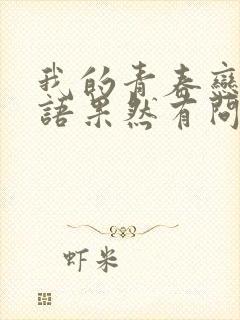 我的青春戀
語果然有問
虾米